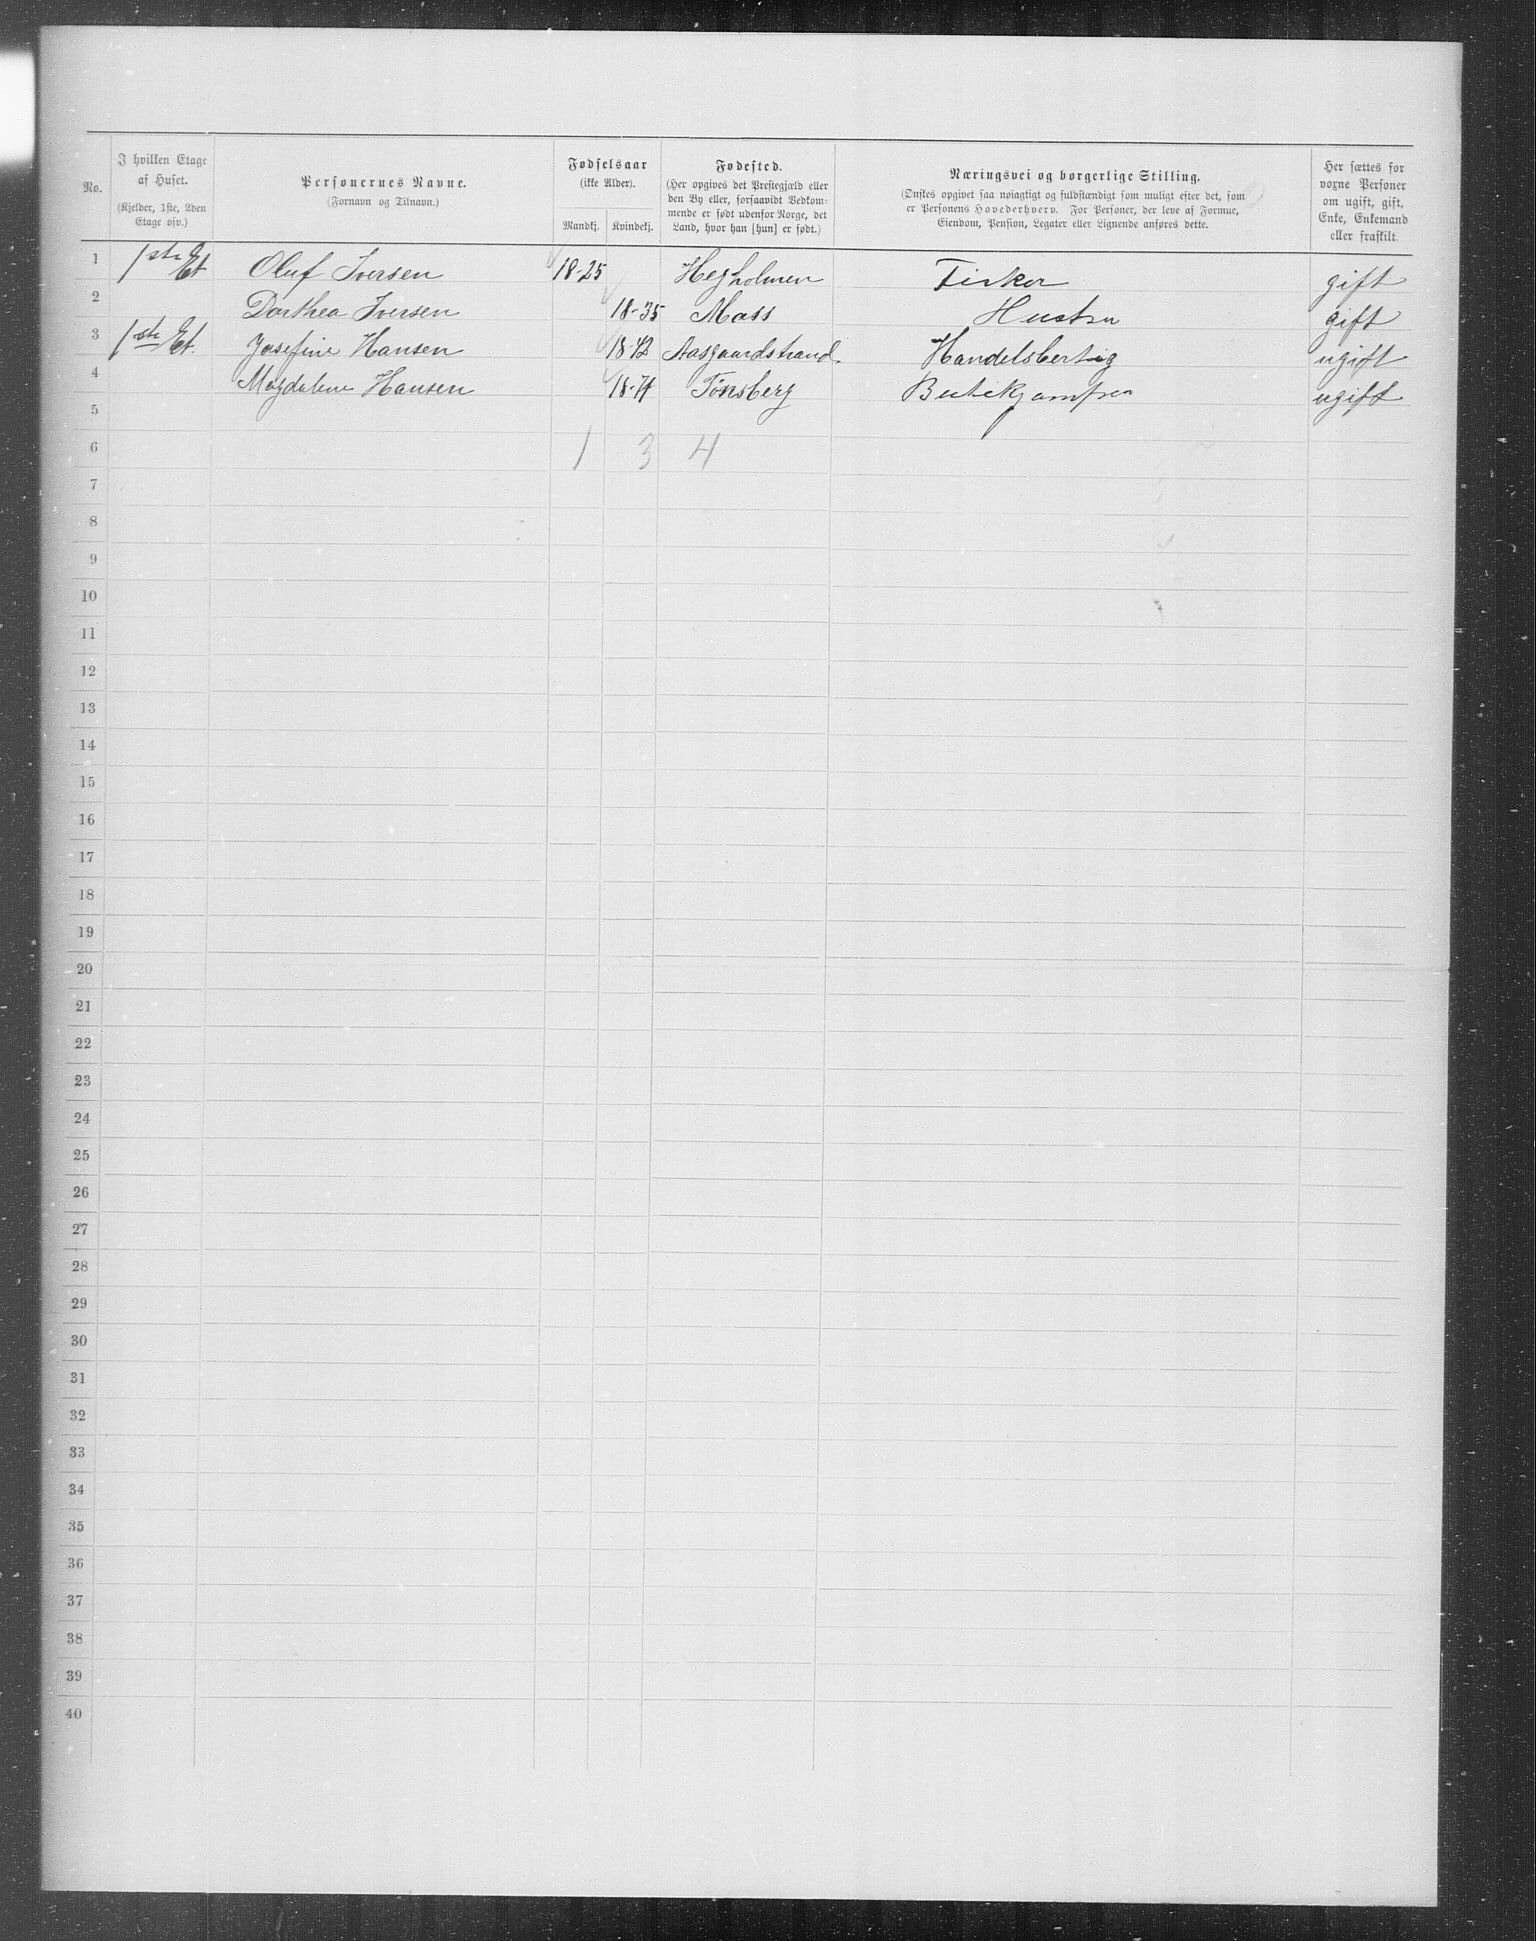 No.
I hvilken Etage af Huset.
(Kjelder, 1ste, 2den Etage osv.)
Personernes Navne.
(Fornavn og Tilnavn.)
Fødselsaar
(ikke Alder).
Mandkj. Kvindekj.
Fødested.
(Her opgives det Prestegjæld eller
den By eller, forsaavidt Vedkom-
mende er født udenfor Norge, det
Land, hvor han [hun] er født.)
Næringsvei og borgerlige Stilling.
(Ønskes opgivet saa nøiagtigt og fuldstændigt som muligt efter det, som
er Personens Hovederhverv. For Personer, der leve af Formue,
Eiendom, Pension, Legater eller Lignende anføres dette.
Her sættes for
voxne Personer
om ugift, gift,
Enke, Enkemand
eller fraskilt.
1 1ste Et Oluf Iversen 18-25 Hegholmen Fisker gift
2 Dorthea Iversen 18-35 Moss Hustru gift
3 1ste Et. Josefine Hansen 18-42 Aasgaardstrand. Handelsbertig ugift
4 Magdalene Hansen 18-71 Tönsberg Butikjomfru ugift
5
6 1 3 4
7
8
9
10
11
12
13
14
15
16
17
18
19
20
21
22
23
24
25
26
27
28
29
30
31
32
33
34
35
36
37
38
39
40